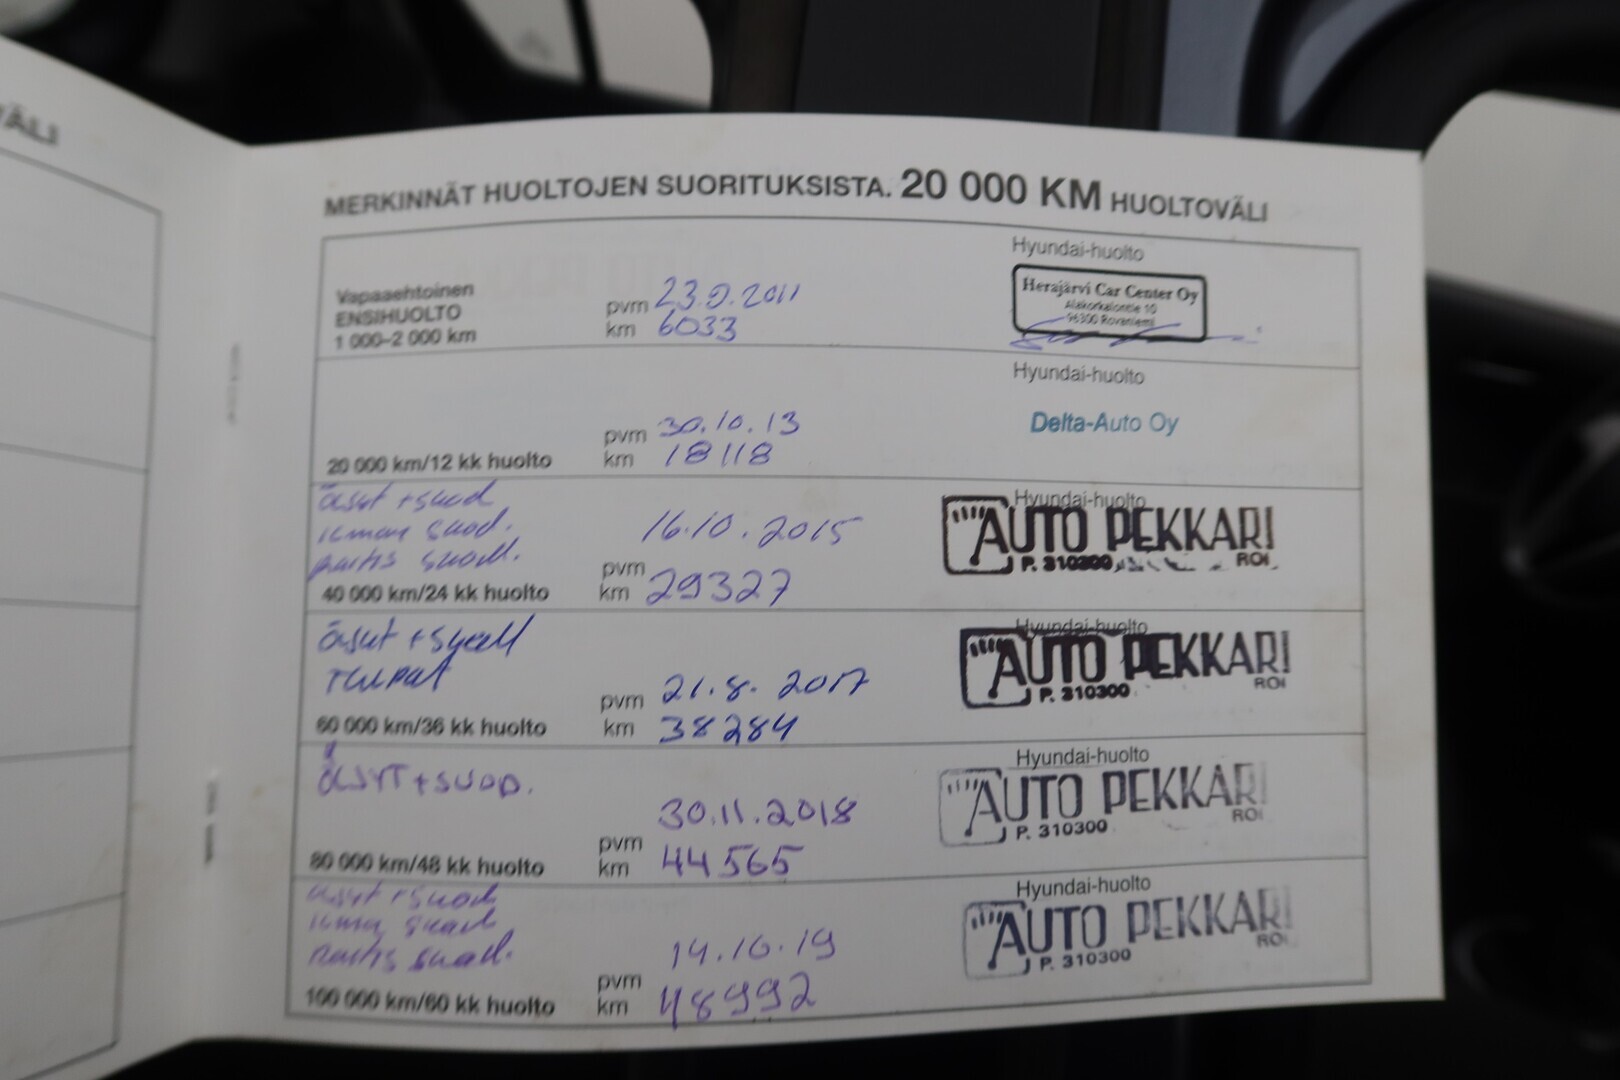 VÄLI
MERKINNÄT HUOLTOJEN SUORITUKSISTA. 20 000 KM HUOLTOVÄLI
Vapaaehtoinen
ENSIHUOLTO
1 000–2 000 km
pvm 23.9.2011
km 6033
Hyundai-huolto
Herajärvi Car Center Oy
Alakorkalontie 10
96300 Rovaniemi
20 000 km/12 kk huolto
pvm 30.10.13
km 18118
Hyundai-huolto
Delta-Auto Oy
öljyt + suod
ilman suod.
40 000 km/24 kk huolto
pvm 16.10.2015
km 29327
Hyundai-huolto
AUTO PEKKARI
P. 310300 ROI
öljyt + suod
Tulpat
60 000 km/36 kk huolto
pvm 21.8.2017
km 38284
Hyundai-huolto
AUTO PEKKARI
P. 310300 ROI
ÖLJYT + SUOD.
80 000 km/48 kk huolto
pvm 30.11.2018
km 44565
Hyundai-huolto
AUTO PEKKARI
P. 310300 ROI
öljyt + suod
100 000 km/60 kk huolto
pvm 14.10.19
km 48992
Hyundai-huolto
AUTO PEKKARI
P. 310300 ROI